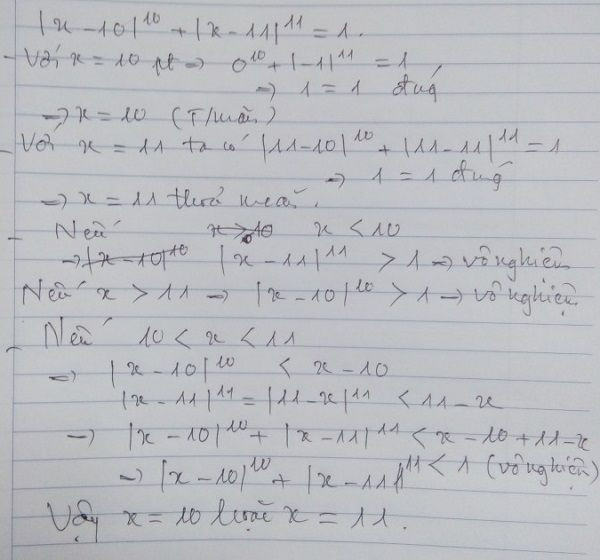 |x-10|¹⁰ + |x-11|¹¹ = 1.
- Với x = 10 pt => 0¹⁰ + |-1|¹¹ = 1
=> 1 = 1 đúng
=> x = 10 (T/mãn)
- Với x = 11 ta có |11-10|¹⁰ + |11-11|¹¹ = 1
=> 1 = 1 đúng
=> x = 11 thoả mãn.
- Nếu x < 10
|x-11|¹¹ > 1 => vô nghiệm
Nếu x > 11 => |x-10|¹⁰ > 1 => vô nghiệm
- Nếu 10 < x < 11
=> |x-10|¹⁰ < x-10
|x-11|¹¹ = |11-x|¹¹ < 11-x
=> |x-10|¹⁰ + |x-11|¹¹ < x-10+11-x
=> |x-10|¹⁰ + |x-11|¹¹ < 1 (vô nghiệm)
Vậy x = 10 hoặc x = 11.